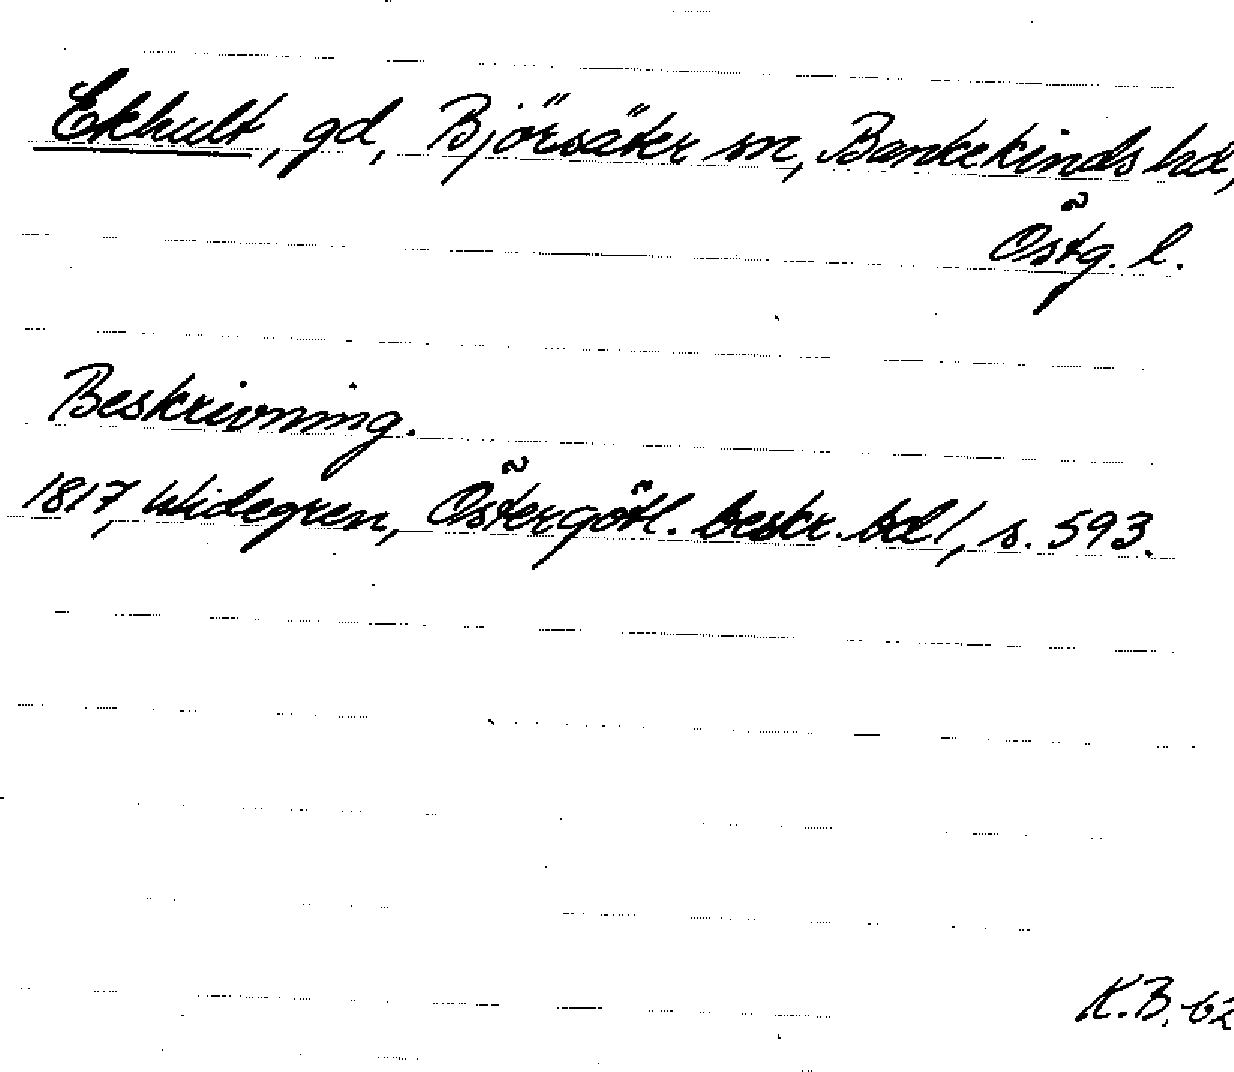 Ekhult, gd, Björsäter sn, Bankekinds hd,
Östg. l.
Beskrivning.
1817, Widegren, Östergötl. beskr. bd 1, s. 593.
K.B. 62